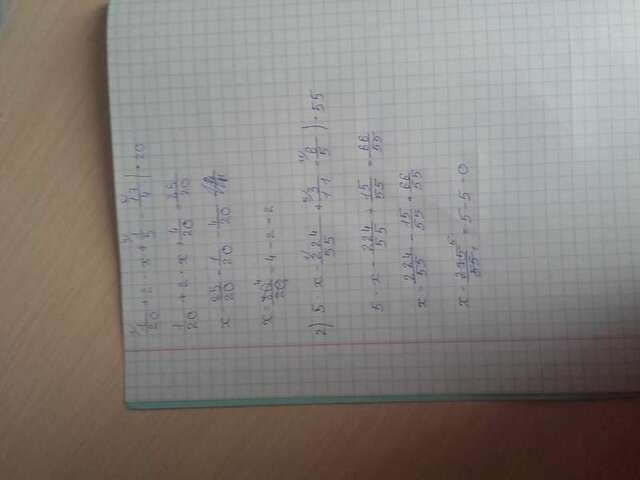 1/20 + 2 · x + 1/5 = 17/4 | · 20
1/20 + 2 · x + 4/20 = 85/20
x = 85/20 - 1/20 - 4/20
x = 80/20 = 4 - 2 = 2
2) 5 · x - 224/55 + 3/11 = 6/5 ) · 55
5 · x - 224/55 + 15/55 = 66/55
x = 224/55 - 15/55 + 66/55
x = 275/55 = 5 - 5 = 0